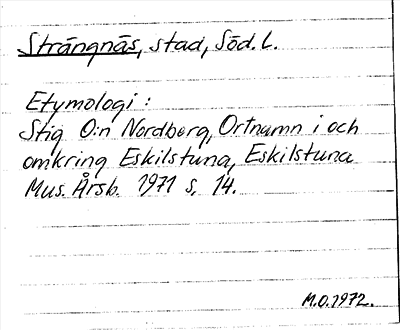 Strängnäs, stad, Söd. l.
Etymologi:
Stig O:n Nordberg, Ortnamn i och
omkring Eskilstuna, Eskilstuna
Mus. Årsb. 1971 s. 14.
M.O. 1972.